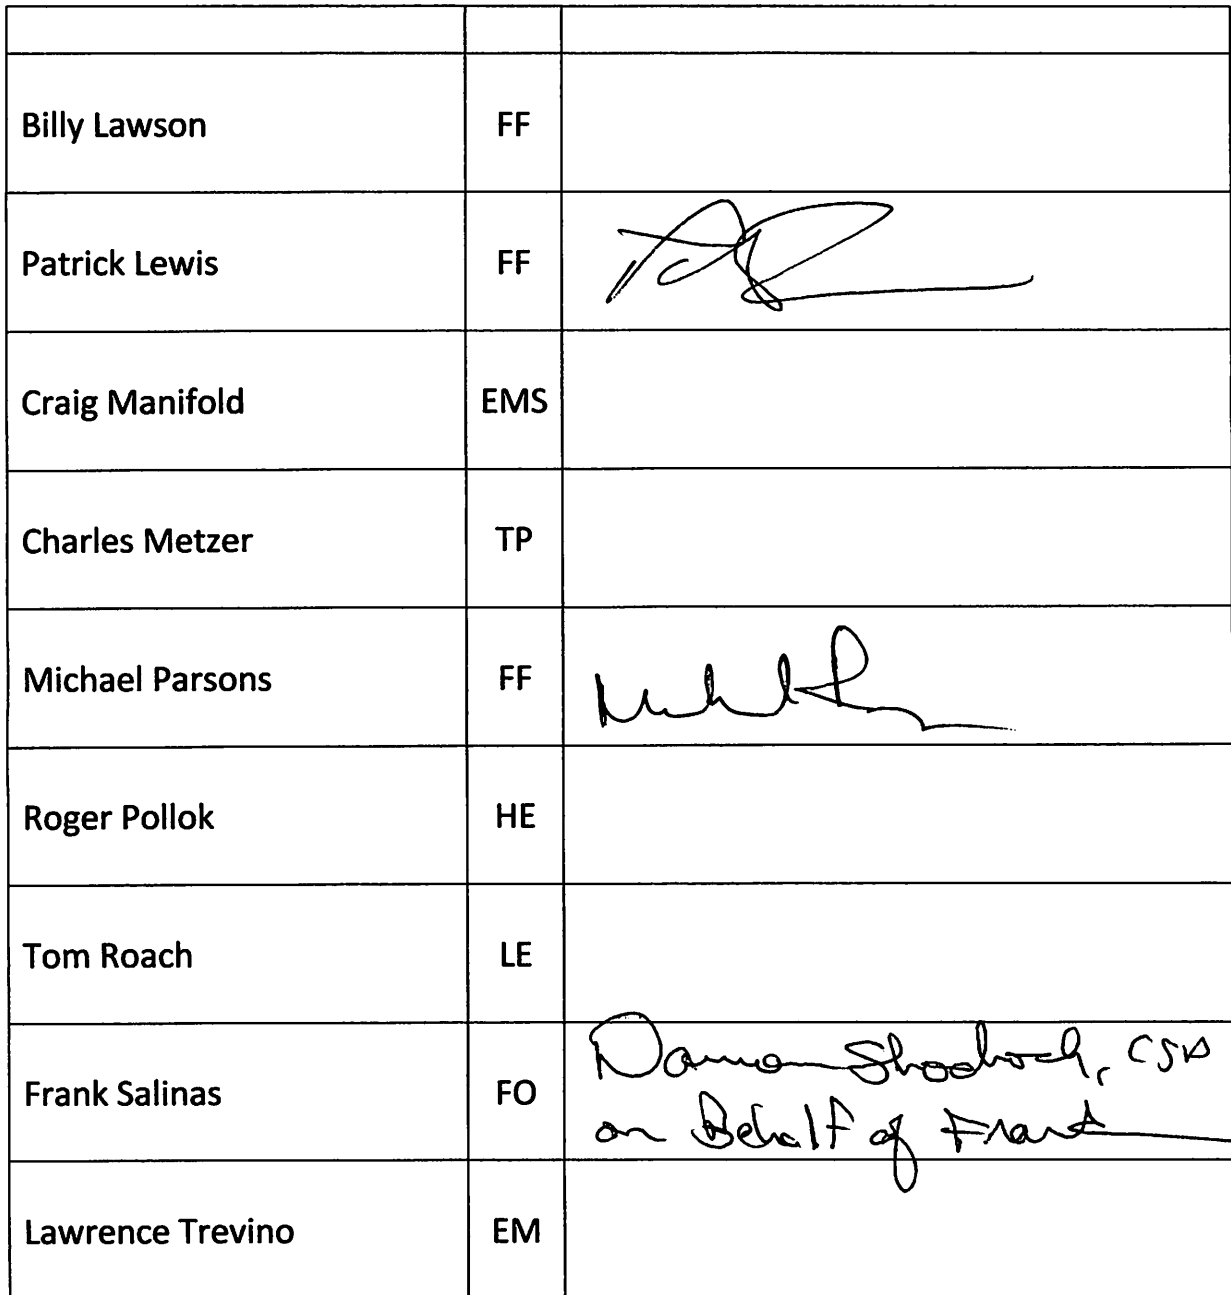 Billy Lawson FF
Patrick Lewis FF
Craig Manifold EMS
Charles Metzer TP
Michael Parsons FF
Roger Pollok HE
Tom Roach LE
Frank Salinas FO
Damon
on Behalf of Frank
Lawrence Trevino EM